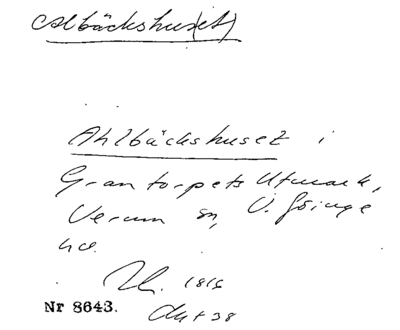 Albäckshus(et)
Ahlbäckshuset i
Grantorpets Utmark,
Verum sn, V. Göinge
hd.
1816
Nr 8643.